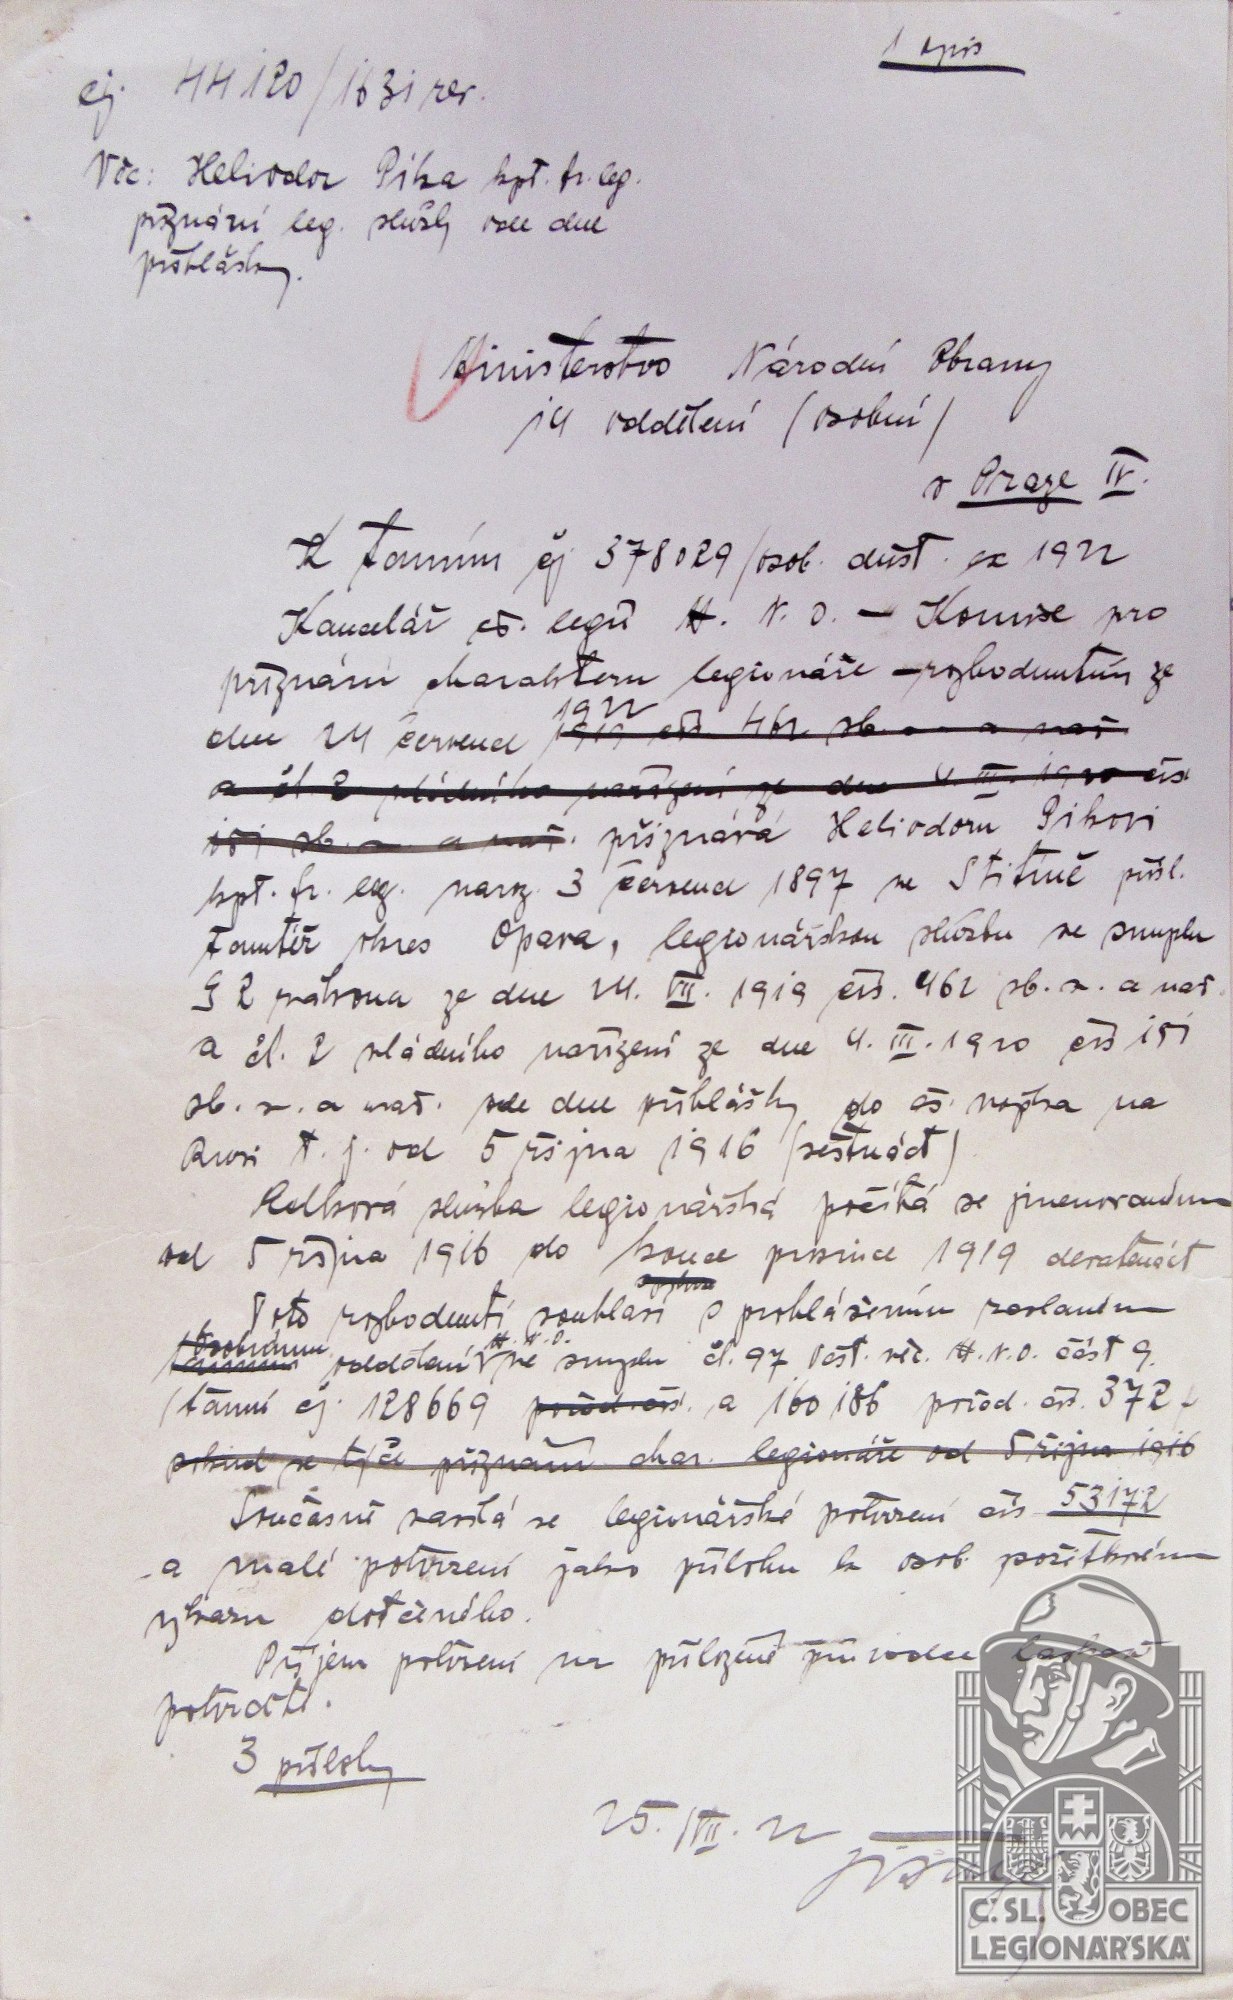 1 opis
čj. 44120/1631 rev.
Věc: Heliodor Pika kpt. fr. leg.
přiznání leg. služby ode dne
přihlášky.
Ministerstvo Národní Obrany
14 oddělení (osobní)
v Praze IV.
K tamním čj 378029/osob. důst. ex 1922
Kancelář čs. legií M. N. O. – Komise pro
přiznání charakteru legionáře – rozhodnutím ze
1922
dne 24 července 1919 čís. 462 sb. z. a nař
a čl. 2 vládního nařízení ze dne 4. III. 1920 čís
151 sb. z. a nař. přiznává Heliodoru Pikovi
kpt. fr. leg. naroz. 3 července 1897 ve Štítině přísl.
tamtéž okres Opava, legionářskou službu ve smyslu
§ 2 zákona ze dne 24. VII. 1919 čís. 462 sb. z. a nař.
a čl. 2 vládního nařízení ze dne 4. III. 1920 čís 151
sb. z. a nař. ode dne přihlášky do čs. vojska na
Rusi t. j. od 5 října 1916 (šestnáct)
Celková služba legionářská počítá se jmenovanému
od 5 října 1916 do konce prosince 1919 devatenáct
Toto rozhodnutí souhlasí s prohlášením zaslaným
osobnímu M. N. O.
tamním oddělení ve smyslu čl. 97 Věst. věc. M. N. O. část 9.
(tamní čj. 128669 pořad. čís. a 160186 pořad. čís. 372
pokud se týče přiznání char. legionáře od 5 října 1916
Současně zasílá se legionářské potvrzení čís 53172
a malé potvrzení jako přílohu k osob. požitkovému
výkazu dotčeného.
Příjem potvrzení na přiložené průvodce laskavě
potvrďte.
3 přílohy
25. VII. 22
Č. SL. OBEC
LEGIONÁŘSKÁ